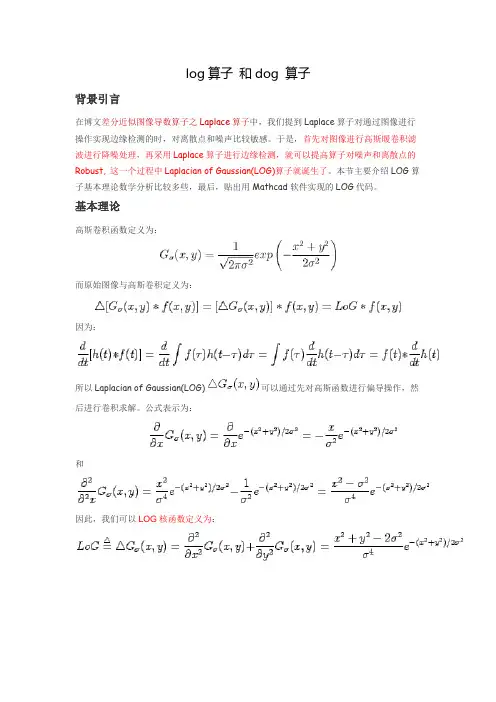 log算子 和dog 算子
背景引言
在博文差分近似图像导数算子之Laplace算子中，我们提到Laplace算子对通过图像进行
操作实现边缘检测的时，对离散点和噪声比较敏感。于是，首先对图像进行高斯暖卷积滤
波进行降噪处理，再采用Laplace算子进行边缘检测，就可以提高算子对噪声和离散点的
Robust, 这一个过程中Laplacian of Gaussian(LOG)算子就诞生了。本节主要介绍LOG算
子基本理论数学分析比较多些，最后，贴出用 Mathcad 软件实现的LOG代码。
基本理论
高斯卷积函数定义为：
G_σ(x,y) = 1/√(2πσ²) exp(−(x² + y²)/(2σ²))
而原始图像与高斯卷积定义为：
△[G_σ(x,y) * f(x,y)] = [△G_σ(x,y)] * f(x,y) = LoG * f(x,y)
因为：
d/dt[h(t)*f(t)] = d/dt ∫ f(τ)h(t−τ)dτ = ∫ f(τ) d/dt h(t−τ)dτ = f(t)* d/dt h(t)
所以Laplacian of Gaussian(LOG) △G_σ(x,y) 可以通过先对高斯函数进行偏导操作，然
后进行卷积求解。公式表示为：
∂/∂x G_σ(x,y) = ∂/∂x e^{−(x²+y²)/2σ²} = −x/σ² e^{−(x²+y²)/2σ²}
和
∂²/∂²x G_σ(x,y) = x²/σ⁴ e^{−(x²+y²)/2σ²} − 1/σ² e^{−(x²+y²)/2σ²} = (x²−σ²)/σ⁴ e^{−(x²+y²)/2σ²}
因此，我们可以LOG核函数定义为：
LoG ≜ △G_σ(x,y) = ∂²/∂x² G_σ(x,y) + ∂²/∂y² G_σ(x,y) = (x² + y² − 2σ²)/σ⁴ e^{−(x²+y²)/2σ²}